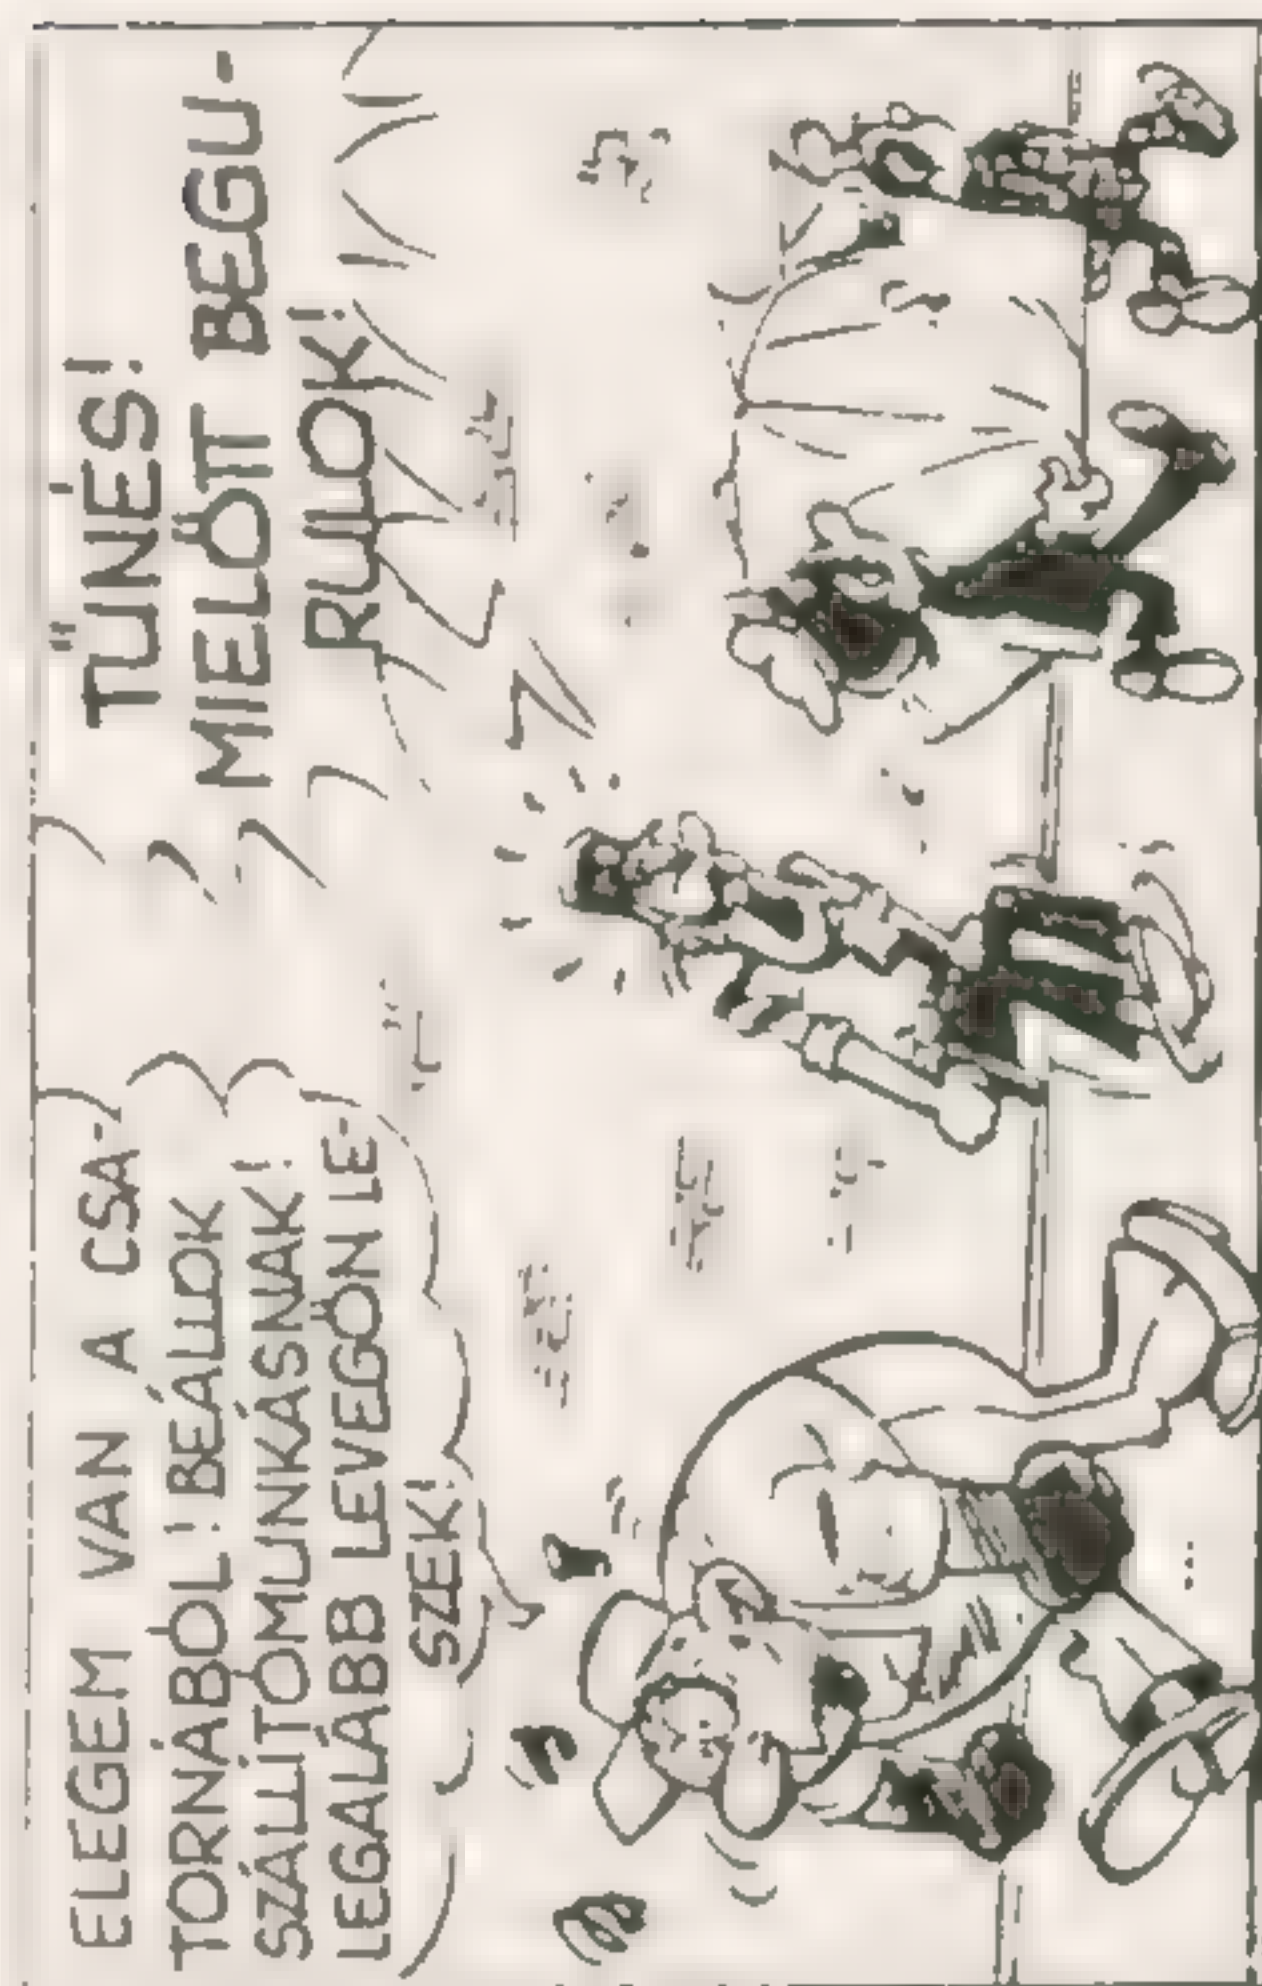 ELEGEM VAN A CSA-
TORNÁBÓL! BEÁLLOK
SZÁLLÍTÓMUNKÁSNAK!
LEGALÁBB LEVEGŐN LE-
SZEK!
TŰNÉS!
MIELŐTT BEGU-
RULOK!